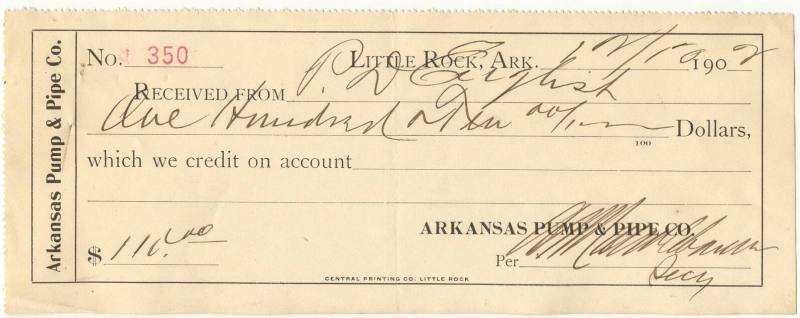 Arkansas Pump & Pipe Co.
No. 350 LITTLE ROCK, ARK. 12/10 1902
RECEIVED FROM P. D. English
One Hundred & Ten 00/100 Dollars,
100
which we credit on account
ARKANSAS PUMP & PIPE CO.
$ 110.00
Per
Secy
CENTRAL PRINTING CO. LITTLE ROCK